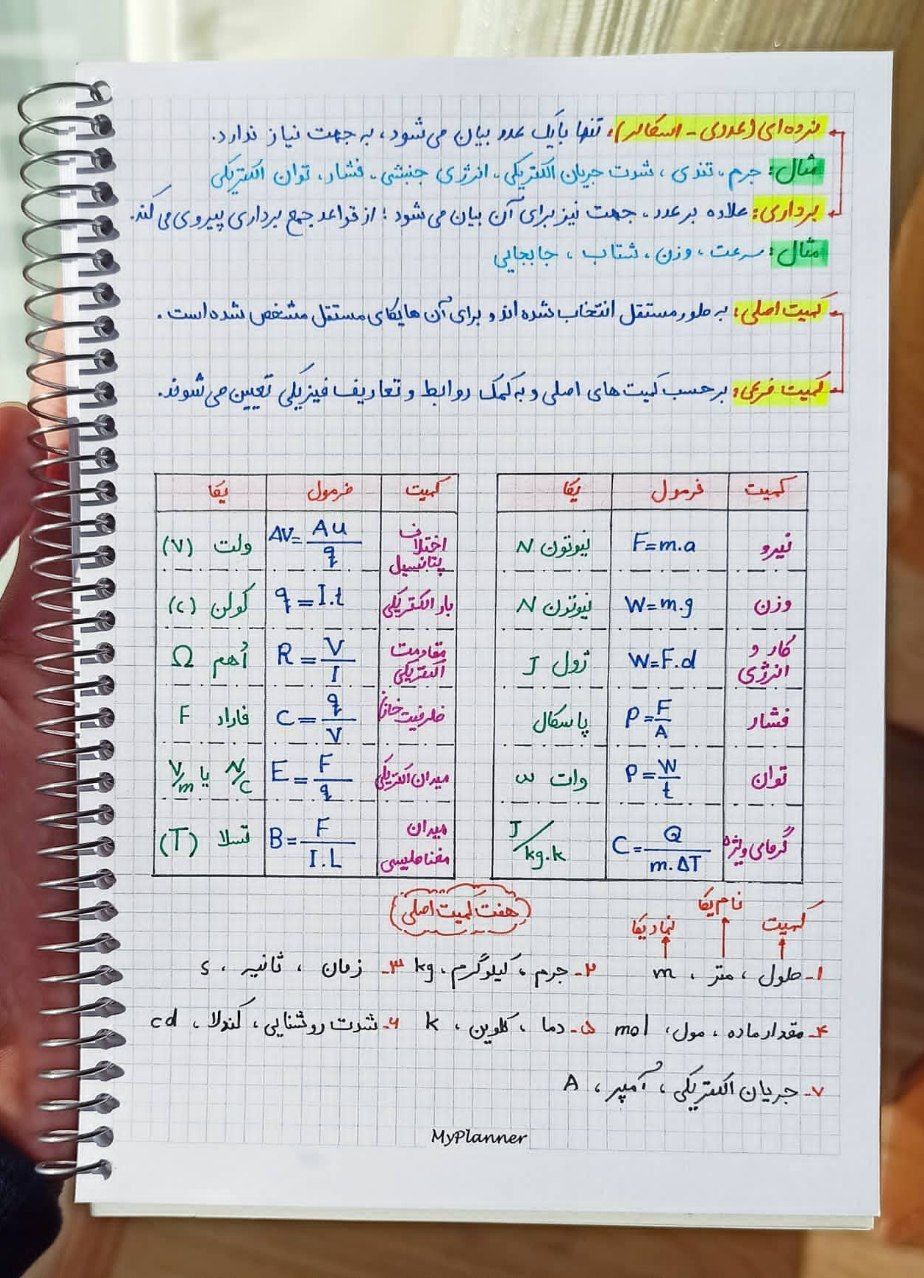 نرده‌ای (عددی - اسکالر): تنها با یک عدد بیان می‌شود، به جهت نیاز ندارد.
مثال: جرم، تندی، شدت جریان الکتریکی، انرژی جنبشی، فشار، توان الکتریکی
برداری: علاوه بر عدد، جهت نیز برای آن بیان می‌شود؛ از قواعد جمع برداری پیروی می‌کند.
مثال: سرعت، وزن، شتاب، جابجایی
کمیت اصلی: به طور مستقل انتخاب شده اند و برای آن ها یکای مستقل مشخص شده است.
کمیت فرعی: بر حسب کمیت های اصلی و به کمک روابط و تعاریف فیزیکی تعیین می‌شوند.
کمیت فرمول یکا
نیرو F=m.a نیوتون N
وزن W=m.g نیوتون N
کار و انرژی W=F.d ژول J
فشار P=F/A پاسکال
توان P=W/t وات w
گرمای ویژه C=Q/m.ΔT J/kg.k
کمیت فرمول یکا
اختلاف پتانسیل ΔV=Δu/q ولت (V)
بار الکتریکی q=I.t کولن (c)
مقاومت الکتریکی R=V/I اُهم Ω
ظرفیت خازن C=q/V فاراد F
میدان الکتریکی E=F/q N/c یا V/m
میدان مغناطیسی B=F/I.L تسلا (T)
هفت کمیت اصلی
کمیت نام یکا نماد یکا
۱- طول، متر، m ۲- جرم، کیلوگرم، kg ۳- زمان، ثانیه، s
۴- مقدار ماده، مول، mol ۵- دما، کلوین، k ۶- شدت روشنایی، کندلا، cd
۷- جریان الکتریکی، آمپر، A
MyPlanner